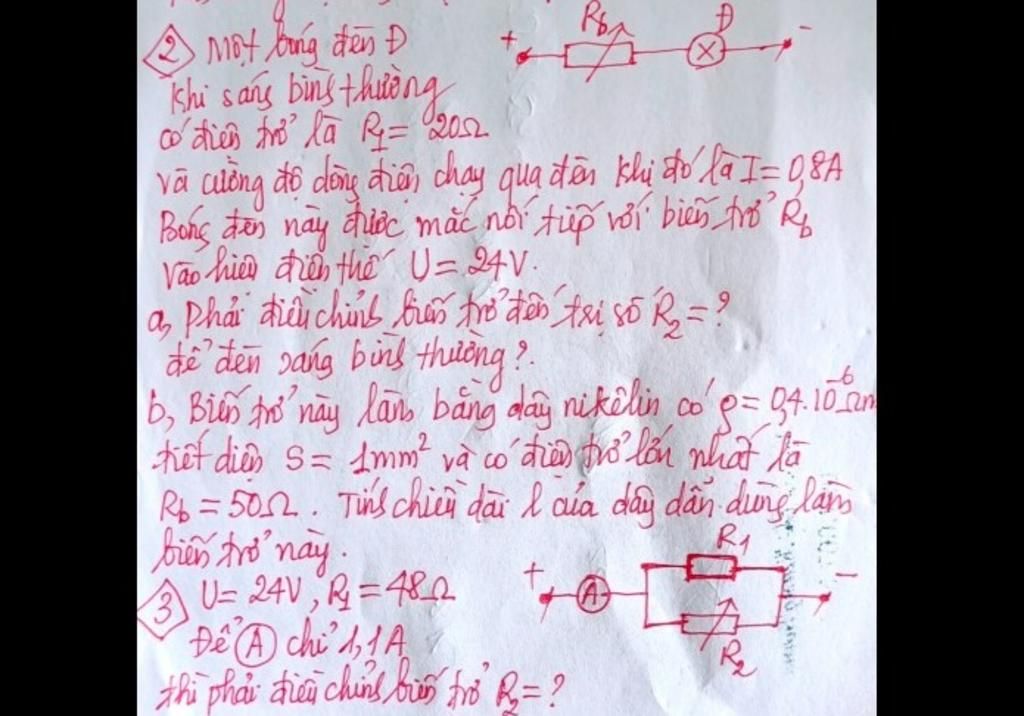 + Rb Đ -
2 Một bóng đèn Đ
Khi sáng bình thường
có điện trở là R1 = 20Ω
và cường độ dòng điện chạy qua đèn khi đó là I = 0,8A
Bóng đèn này được mắc nối tiếp với biến trở Rb
vào hiệu điện thế U = 24V.
a, Phải điều chỉnh biến trở đến trị số R2 = ?
để đèn sáng bình thường?.
b, Biến trở này làm bằng dây nikêlin có ρ = 0,4.10⁻⁶Ωm
tiết diện S = 1mm² và có điện trở lớn nhất là
Rb = 50Ω. Tính chiều dài l của dây dẫn dùng làm
biến trở này.
3 U = 24V, R1 = 48Ω
Để A chỉ 1,1A
thì phải điều chỉnh biến trở R2 = ?
+ A R1 -
R2